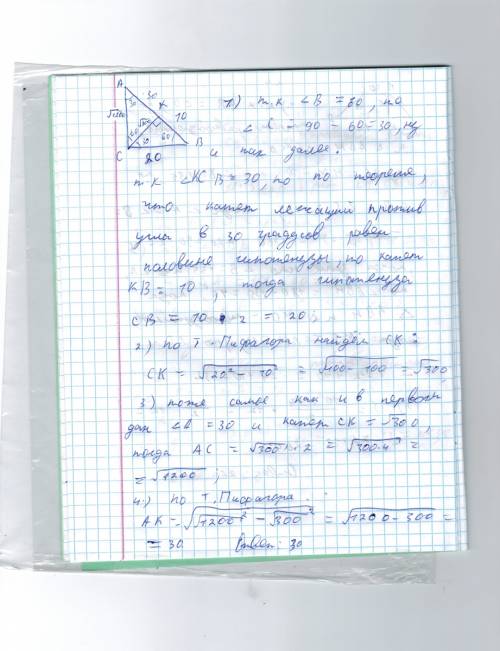 A
30
30
K
√1200
√300
10
60
30
60
B
C
20
1) т.к ∠B = 60, то
= 90 - 60 = 30, ну
и так далее.
т.к ∠KCB = 30, то по теореме,
что катет лежащий против
угла в 30 градусов равен
половине гипотенузы, то катет
KB = 10, тогда гипотенуза
CB = 10 · 2 = 20
2) по т. Пифагора найдем CK:
CK = √20² - 10² = √400 - 100 = √300
3) тоже самое как и в первом
∠ = 30 и катет CK = √300,
тогда AC = √300 · 2 = √300·4 =
= √1200;
4) по т. Пифагора.
AK = √√1200² - √300² = √1200 - 300 =
= 30 Ответ: 30